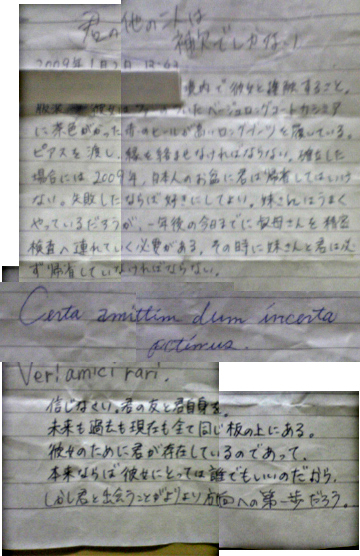 君の他の二人は
補欠でしかない
2009年1月2日 13:43
境内で彼女と接触すること。
服装 彼女はファーのついたベージュロングコートカシミア
に茶色がかった赤のヒールが高いロングブーツを履いている。
ピアスを渡し、縁を結ばなければならない。確立した
場合には2009年、日本人のお盆に君は帰省してはいけ
ない。失敗したならば好きにしてよい。妹さんはうまく
やっているだろうが、一年後の今日までに叔母さんを精密
検査へ連れていく必要がある。その時に妹さんと君は必
ず帰省していなければならない。
Certa amittim dum incerta
petimus.
Veri amici rari.
信じなさい。君の友と君自身を。
未来も過去も現在も全て同じ板の上にある。
彼女のために君が存在しているのであって、
本来ならば彼女にとっては誰でもいいのだから。
しかし君と出会うことがよりよい方向への第一歩だろう。